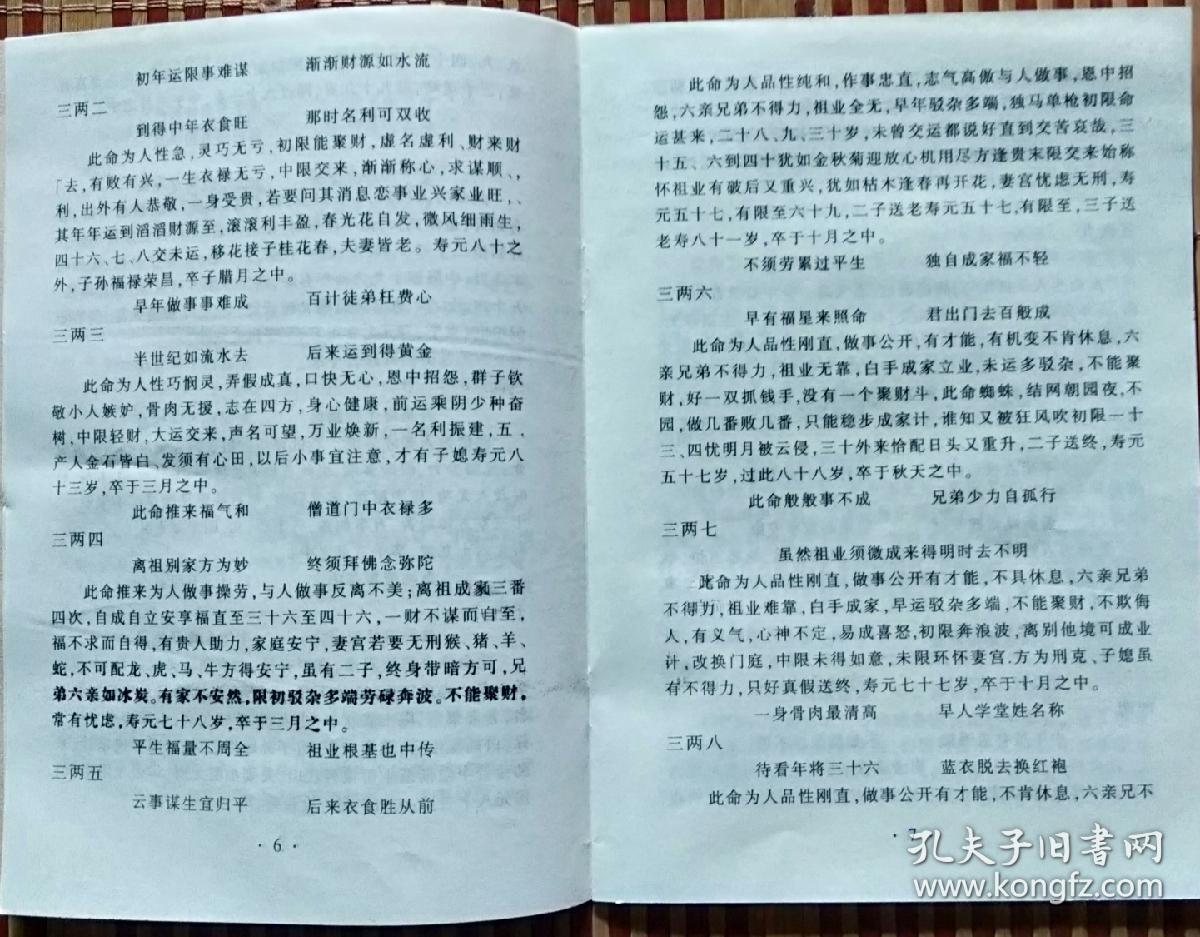 初年运限事难谋 渐渐财源如水流
三两二
到得中年衣食旺 那时名利可双收
此命为人性急,灵巧无亏,初限能聚财,虚名虚利、财来财
「去,有败有兴,一生衣禄无亏,中限交来,渐渐称心,求谋顺、,
利,出外有人恭敬,一身受贵,若要问其消息恋事业兴家业旺,、
其年年运到滔滔财源至,滚滚利丰盈,春光花自发,微风细雨生,
四十六、七、八交未运,移花接子桂花春,夫妻皆老。寿元八十之
外,子孙福禄荣昌,卒子腊月之中。
早年做事事难成 百计徒弟枉费心
三两三
半世纪如流水去 后来运到得黄金
此命为人性巧悯灵,弄假成真,口快无心,恩中招怨,群子钦
敬小人嫉妒,骨肉无援,志在四方,身心健康,前运乘阴少种奋
树,中限轻财,大运交来,声名可望,万业焕新,一名利振建,五,
产人金石皆白、发须有心田,以后小事宜注意,才有子媳寿元八
十三岁,卒于三月之中。
此命推来福气和 僧道门中衣禄多
三两四
离祖别家方为妙 终须拜佛念弥陀
此命推来为人做事操劳,与人做事反离不美;离祖成额三番
四次,自成自立安享福直至三十六至四十六,一财不谋而自至,
福不求而自得,有贵人助力,家庭安宁,妻宫若要无刑猴、猪、羊、
蛇,不可配龙、虎、马、牛方得安宁,虽有二子,终身带暗方可,兄
弟六亲如冰炭。有家不安然,限初驳杂多端劳碌奔波。不能聚财,
常有忧虑,寿元七十八岁,卒于三月之中。
平生福量不周全 祖业根基也中传
三两五
云事谋生宜归平 后来衣食胜从前
·6·
此命为人品性纯和,作事忠直,志气高傲与人做事,恩中招
怨,六亲兄弟不得力,祖业全无,早年驳杂多端,独马单枪初限命
运甚来,二十八、九、三十岁,未曾交运都说好直到交苦哀哉,三
十五、六到四十犹如金秋菊迎放心机用尽方逢贵末限交来始称
怀祖业有破后又重兴,犹如枯木逢春再开花,妻宫忧虑无刑,寿
元五十七,有限至六十九,二子送老寿元五十七,有限至,三子送
老寿八十一岁,卒于十月之中。
不须劳累过平生 独自成家福不轻
三两六
早有福星来照命 君出门去百般成
此命为人品性刚直,做事公开,有才能,有机变不肯休息,六
亲兄弟不得力,祖业无靠,白手成家立业,未运多驳杂,不能聚
财,好一双抓钱手,没有一个聚财斗,此命蜘蛛,结网朝园夜,不
园,做几番败几番,只能稳步成家计,谁知又被狂风吹初限一十
三、四忧明月被云侵,三十外来恰配日头又重升,二子送终,寿元
五十七岁,过此八十八岁,卒于秋天之中。
此命般般事不成 兄弟少力自孤行
三两七
虽然祖业须微成来得明时去不明
此命为人品性刚直,做事公开有才能,不具休息,六亲兄弟
不得力,祖业难靠,白手成家,早运驳杂多端,不能聚财,不欺侮
人,有义气,心神不定,易成喜怒,初限奔浪波,离别他境可成业
计,改换门庭,中限未得如意,未限环怀妻宫.方为刑克、子媳虽
有不得力,只好真假送终,寿元七十七岁,卒于十月之中。
一身骨肉最清高 早人学堂姓名称
三两八
待看年将三十六 蓝衣脱去换红袍
此命为人品性刚直,做事公开有才能,不肯休息,六亲兄不
孔夫子旧书网
www.kongfz.com